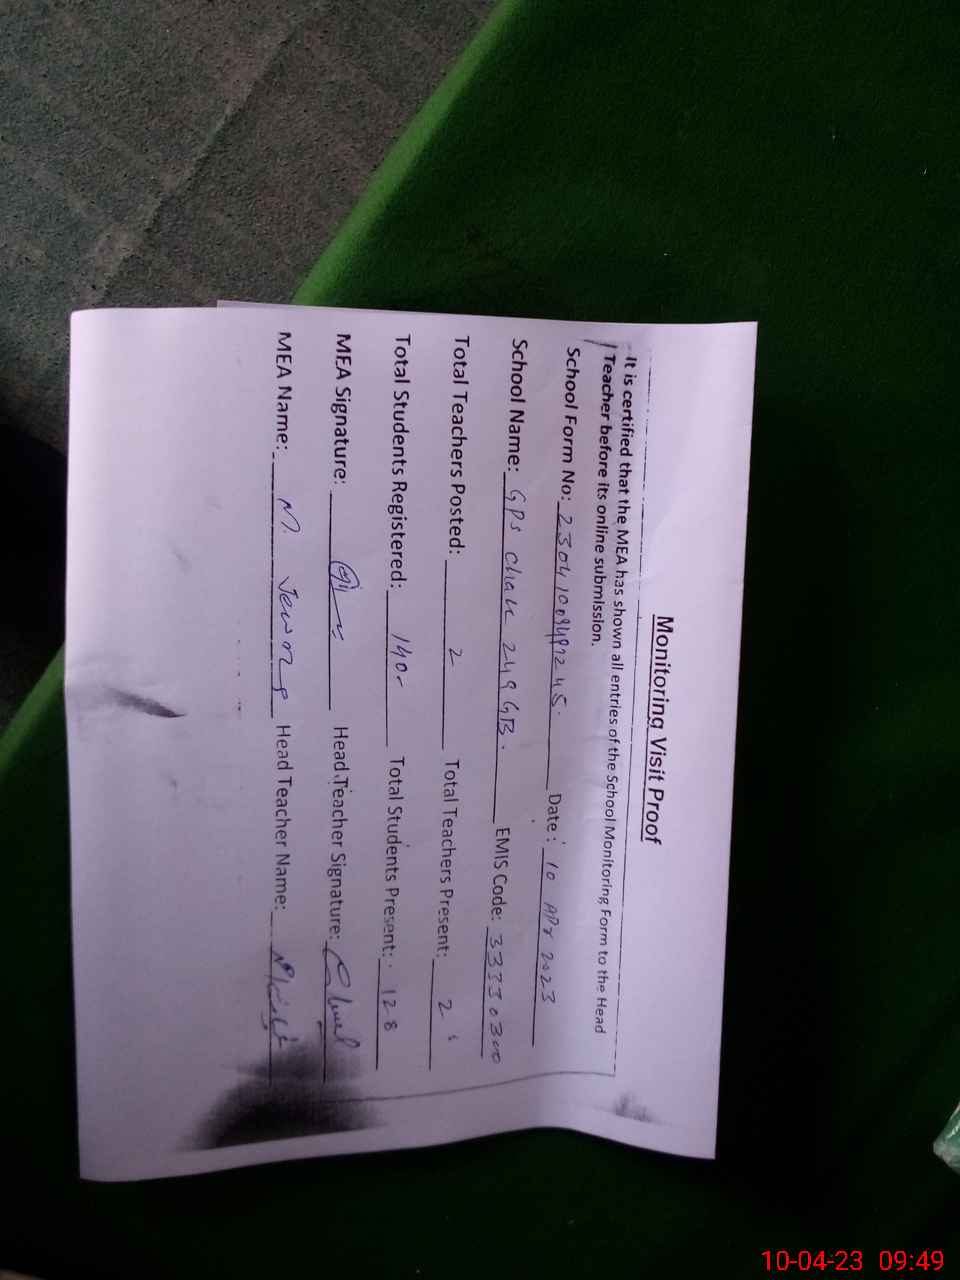 Monitoring Visit Proof
It is certified that the MEA has shown all entries of the School Monitoring Form to the Head
Teacher before its online submission.
School Form No: Date: 10 Apr 2023
School Name: GPS Chak 249 GB. EMIS Code: 33330300
Total Teachers Posted: 2 Total Teachers Present: 2
Total Students Registered: 140 Total Students Present: 128
MEA Signature: Head Teacher Signature:
MEA Name: M. Head Teacher Name:
10-04-23 09:49